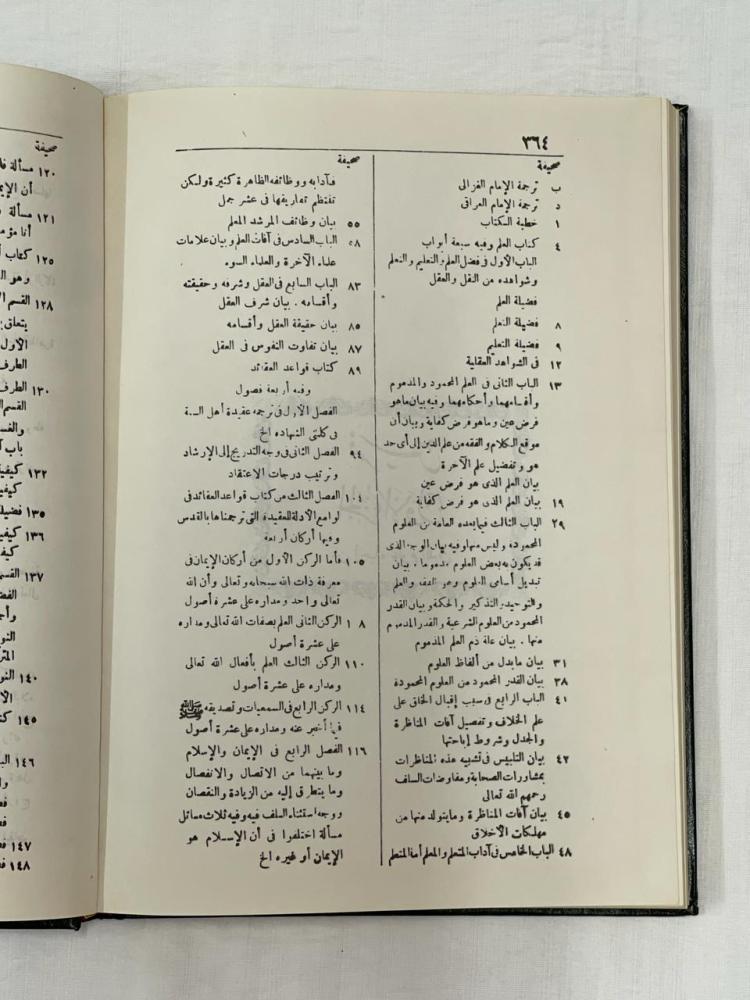 ٣٦٤
صحيفة
ب ترجمة الإمام الغزالى
د ترجمة الإمام العراقى
١ خطبة الكتاب
٤ كتاب العلم وفيه سبعة أبواب
الباب الأول فى فضل العلم والتعليم والتعلم
وشواهده من النقل والعقل
فضيلة العلم
٨ فضيلة التعلم
٩ فضيلة التعليم
١٢ فى الشواهد العقلية
١٣ الباب الثانى فى العلم المحمود والمذموم
وأقسامهما وأحكامهما وفيه بيان ماهو
فرض عين وماهو فرض كفاية وبيان أن
موقع الكلام والفقه من علم الدين إلى أى حد
هو وتفضيل علم الآخرة
بيان العلم الذى هو فرض عين
١٩ بيان العلم الذى هو فرض كفاية
٢٩ الباب الثالث فيما يعده العامة من العلوم
المحمودة وليس منها وفيه بيان الوجه الذى
قد يكون به بعض العلوم مذموما . بيان
تبديل أسامى العلوم وهو الفقه والعلم
والتوحيد والتذكير والحكمة وبيان القدر
المحمود من العلوم الشرعية والقدر المذموم
منها . بيان علة ذم العلم المذموم
٣١ بيان مابدل من ألفاظ العلوم
٣٨ بيان القدر المحمود من العلوم المحمودة
٤١ الباب الرابع فى سبب إقبال الخلق على
علم الخلاف وتفصيل آفات المناظرة
والجدل وشروط إباحتها
٤٢ بيان التلبيس فى تشبيه هذه المناظرات
بمشاورات الصحابة ومفاوضات السلف
رحمهم الله تعالى
٤٥ بيان آفات المناظرة ومايتولد منها من
مهلكات الأخلاق
٤٨ الباب الخامس فى آداب المتعلم والمعلم أما المتعلم
صحيفة
فآدابه ووظائفه الظاهرة كثيرة ولكن
تنتظم تفاريقها فى عشر جمل
٥٥ بيان وظائف المرشد المعلم
٥٨ الباب السادس فى آفات العلم وبيان علامات
علماء الآخرة والعلماء السوء
٨٣ الباب السابع فى العقل وشرفه وحقيقته
وأقسامه . بيان شرف العقل
٨٥ بيان حقيقة العقل وأقسامه
٨٧ بيان تفاوت النفوس فى العقل
٨٩ كتاب قواعد العقائد
وفيه أربعة فصول
الفصل الأول فى ترجمة عقيدة أهل السنة
فى كلمتى الشهادة الخ
٩٤ الفصل الثانى فى وجه التدريج إلى الإرشاد
وترتيب درجات الاعتقاد
١٠٤ الفصل الثالث من كتاب قواعد العقائد فى
لوامع الأدلة للعقيدة التى ترجمناها بالقدس
وفيها أركان أربعة
١٠٥ فأما الركن الأول من أركان الإيمان فى
معرفة ذات الله سبحانه وتعالى وأن الله
تعالى واحد ومداره على عشرة أصول
١٠٨ الركن الثانى العلم بصفات الله تعالى ومداره
على عشرة أصول
١١٠ الركن الثالث العلم بأفعال الله تعالى
ومداره على عشرة أصول
١١٤ الركن الرابع فى السمعيات وتصديقه ﷺ
فيما أخبر عنه ومداره على عشرة أصول
١١٦ الفصل الرابع فى الإيمان والإسلام
وما بينهما من الاتصال والانفصال
وما يتطرق إليه من الزيادة والنقصان
ووجه استثناء السلف فيه وفيه ثلاث مسائل
مسألة اختلفوا فى أن الإسلام هو
الإيمان أو غيره الخ
صحيفة
١٢٠ مسألة
أن
١٢١ مسألة
أنا
١٢٥ كتاب
١٢٨ القسم
يتعلق
الأول
الطرف
١٣٠ الطرف
القسم
باب
١٣٢
١٣٥ فضيلة
١٣٦
١٣٧
١٤٠
١٤٥
١٤٦
١٤٧
١٤٨